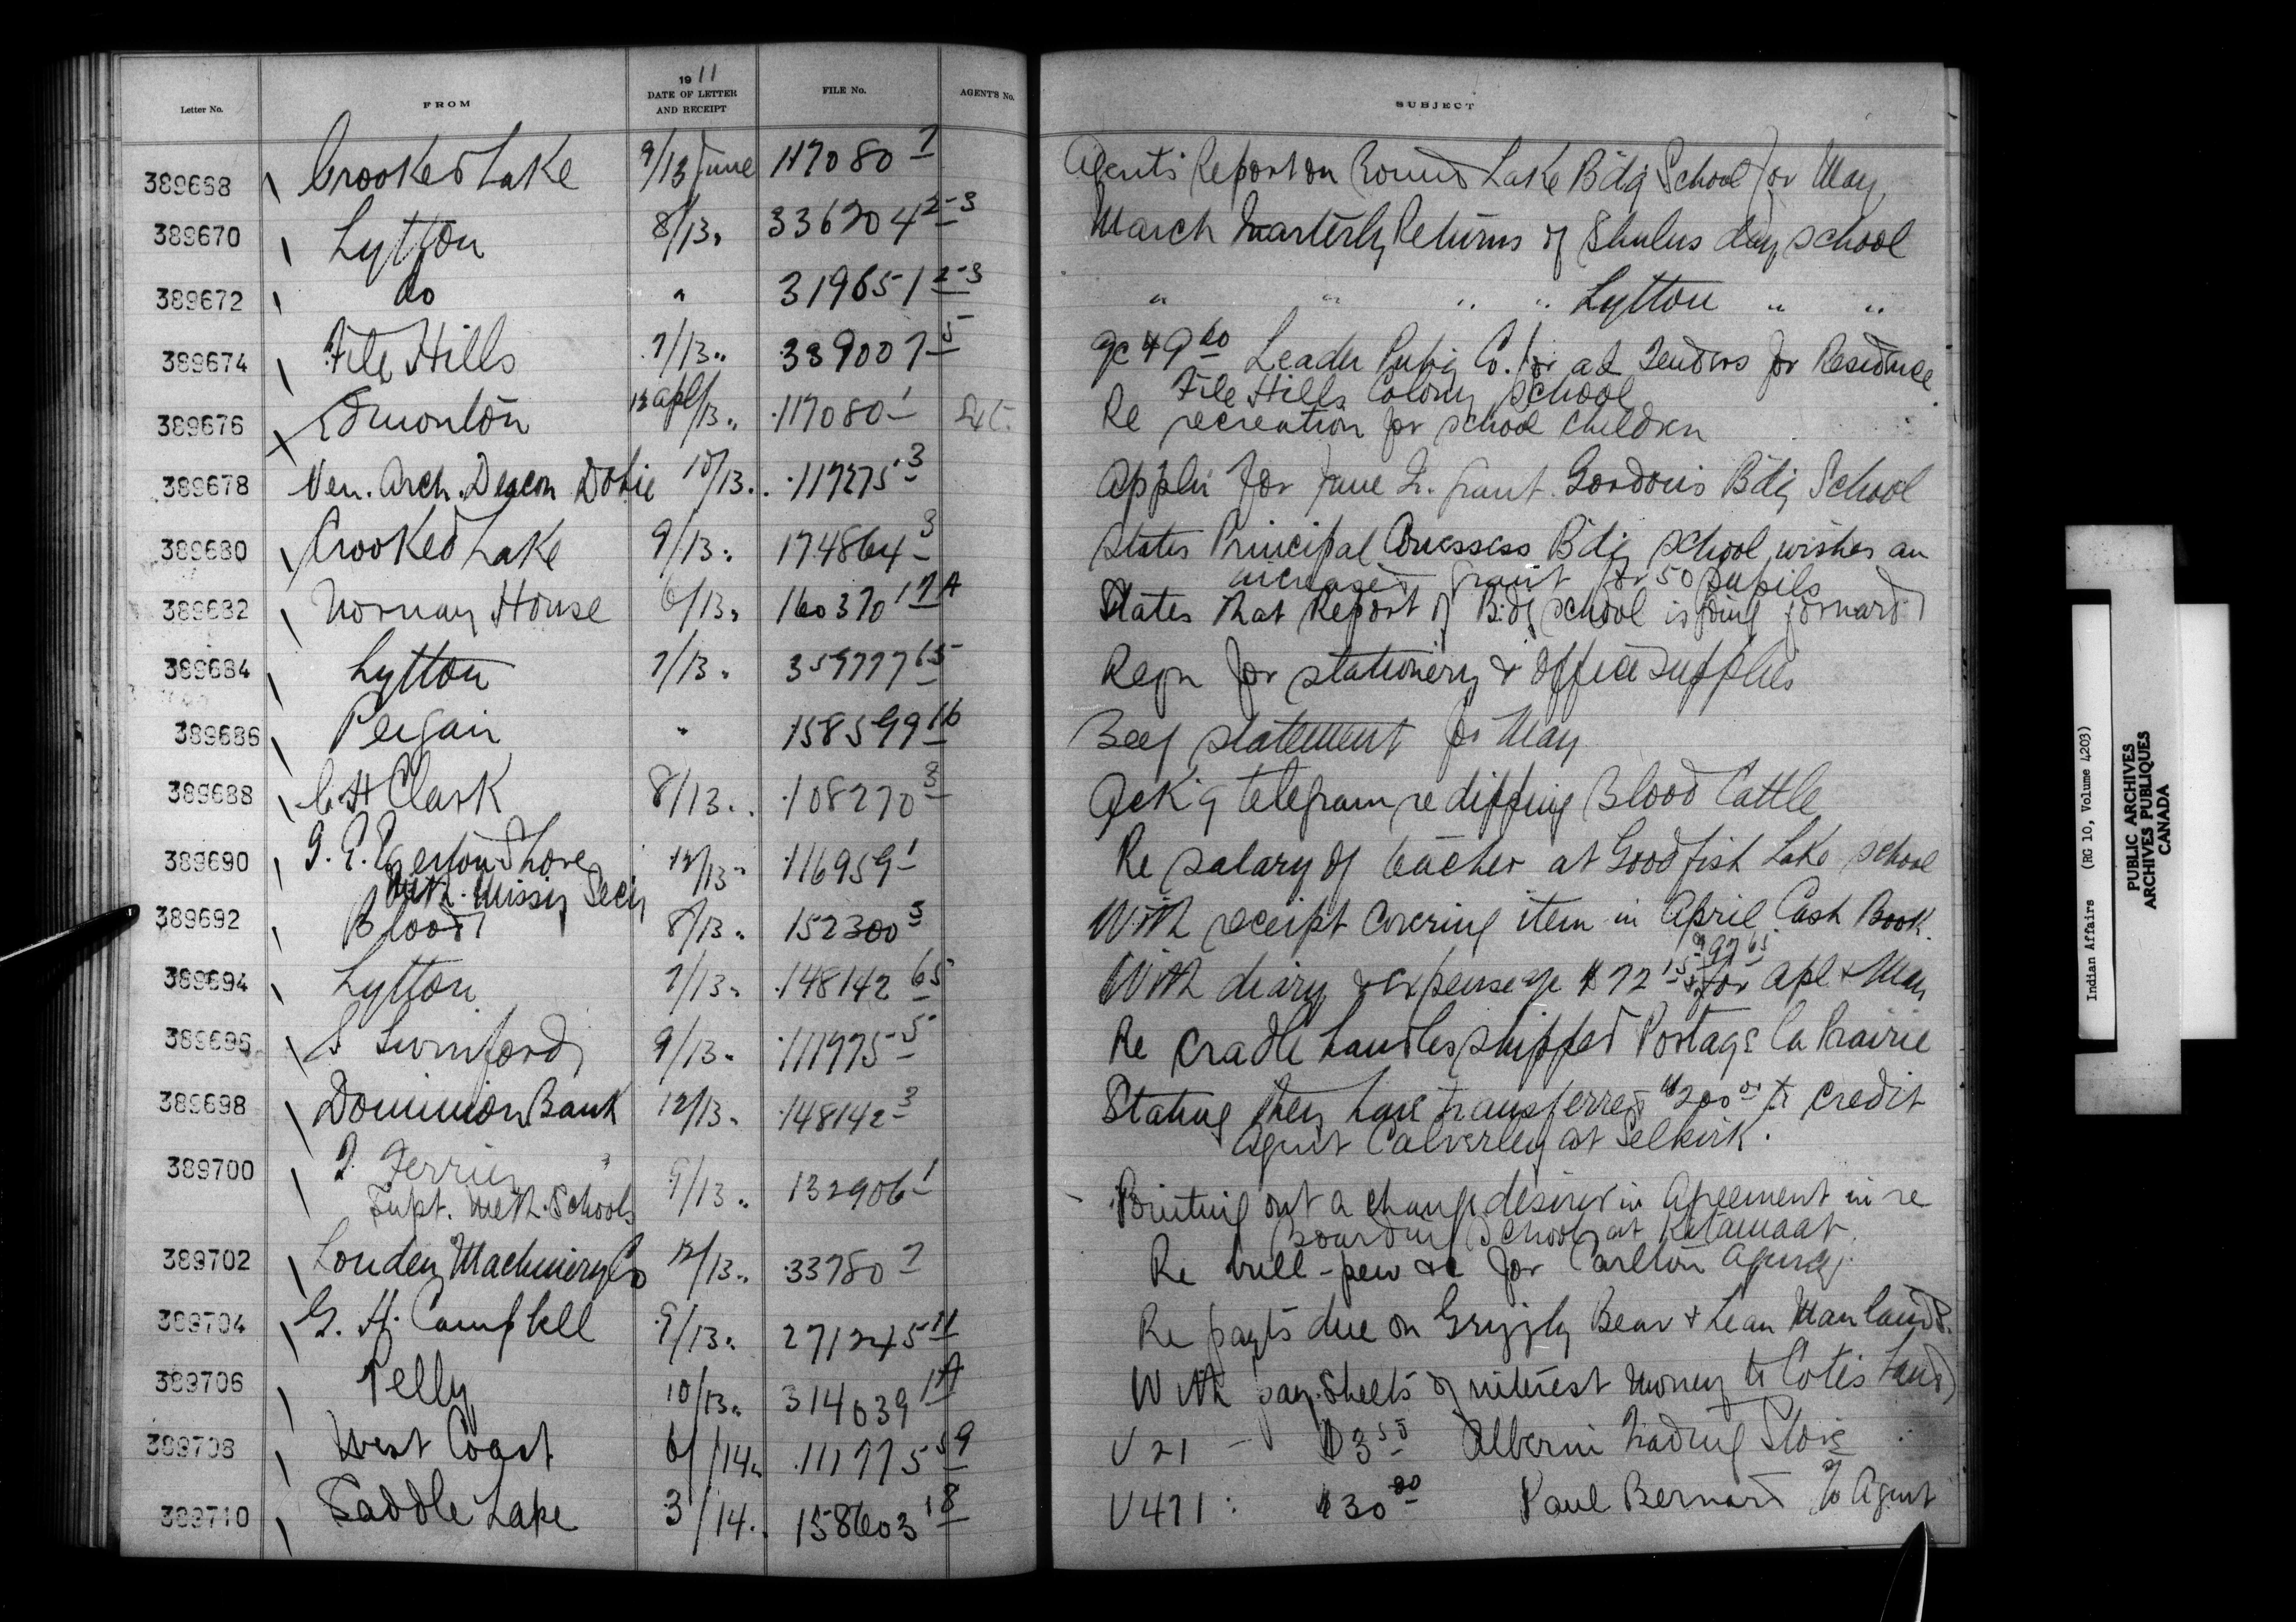 Letter No. FROM 19 11 DATE OF LETTER AND RECEIPT FILE No. AGENT'S No. SUBJECT
389668 Crooked Lake 9/13 June 117080 7 Agent's Report on Round Lake Bdg School for May
389670 Lytton 8/13 " 336204 2-3 March Quarterly Returns of Shulus day school
389672 do " 319651 2-3 " " " " Lytton " "
389674 File Hills 7/13 " 389007 5 a/c 49 60 Leader Pubg Co. for ad Tenders for Residence
File Hills Colony School
389676 Edmonton 12 apl/13 " 117080 1 Re recreation for school children
389678 Ven. Arch. Deacon Dobie 10/13 " 117275 3 Appln for June Q. grant Gordon's Bdg School
389680 Crooked Lake 9/13 " 174864 3 States Principal Cowessess Bdg school wishes an
increased grant for 50 pupils
389682 Norway House 6/13 " 160370 17A States that Report of Bdg school is going forward
389684 Lytton 7/13 " 359777 65 Reqn for stationery & office supplies
389686 Peigan " 158599 16 Beef statement for May
389688 C. H Clark 8/13 " 108270 3 Ack'g telegram re dipping Blood Cattle
389690 T. E. Egerton Shore 12/13 " 116959 1 Re salary of teacher at Goodfish Lake school
Meth. Missy Secy
389692 Blood 8/13 " 152300 3 With receipt covering item in April Cash Book
389694 Lytton 7/13 " 148142 65 With diary & expense a/c $72 15 & 97 65 for Apl & May
389696 S Swinford 9/13 " 111975 5 Re cradle handles shipped Portage la Prairie
389698 Dominion Bank 12/13 " 148142 3 Stating they have transferred $200 00 to credit
Agent Calverley at Selkirk.
389700 T. Ferrier 9/13 " 132906 1 Pointing out a change desired in Agreement in re
Supt. Meth. Schools Boarding School at Kitamaat.
389702 Louden Machinery Co 12/13 " 33780 7 Re bull-pen &c for Carlton Agency.
389704 G. H. Campbell 9/13 " 271245 11 Re payts due on Grizzly Bear & Lean Man lands.
389706 Pelly 10/13 " 314639 1A With pay-sheets of interest money to Cotes band
389708 West Coast 6/14 " 111775 59 V 21 - $3 50 Alberni Trading Store
389710 Saddle Lake 3/14 " 158603 18 V 471 : $30 00 Paul Bernard To Agent
Indian Affairs (RG 10, Volume 4203)
PUBLIC ARCHIVES
ARCHIVES PUBLIQUES
CANADA